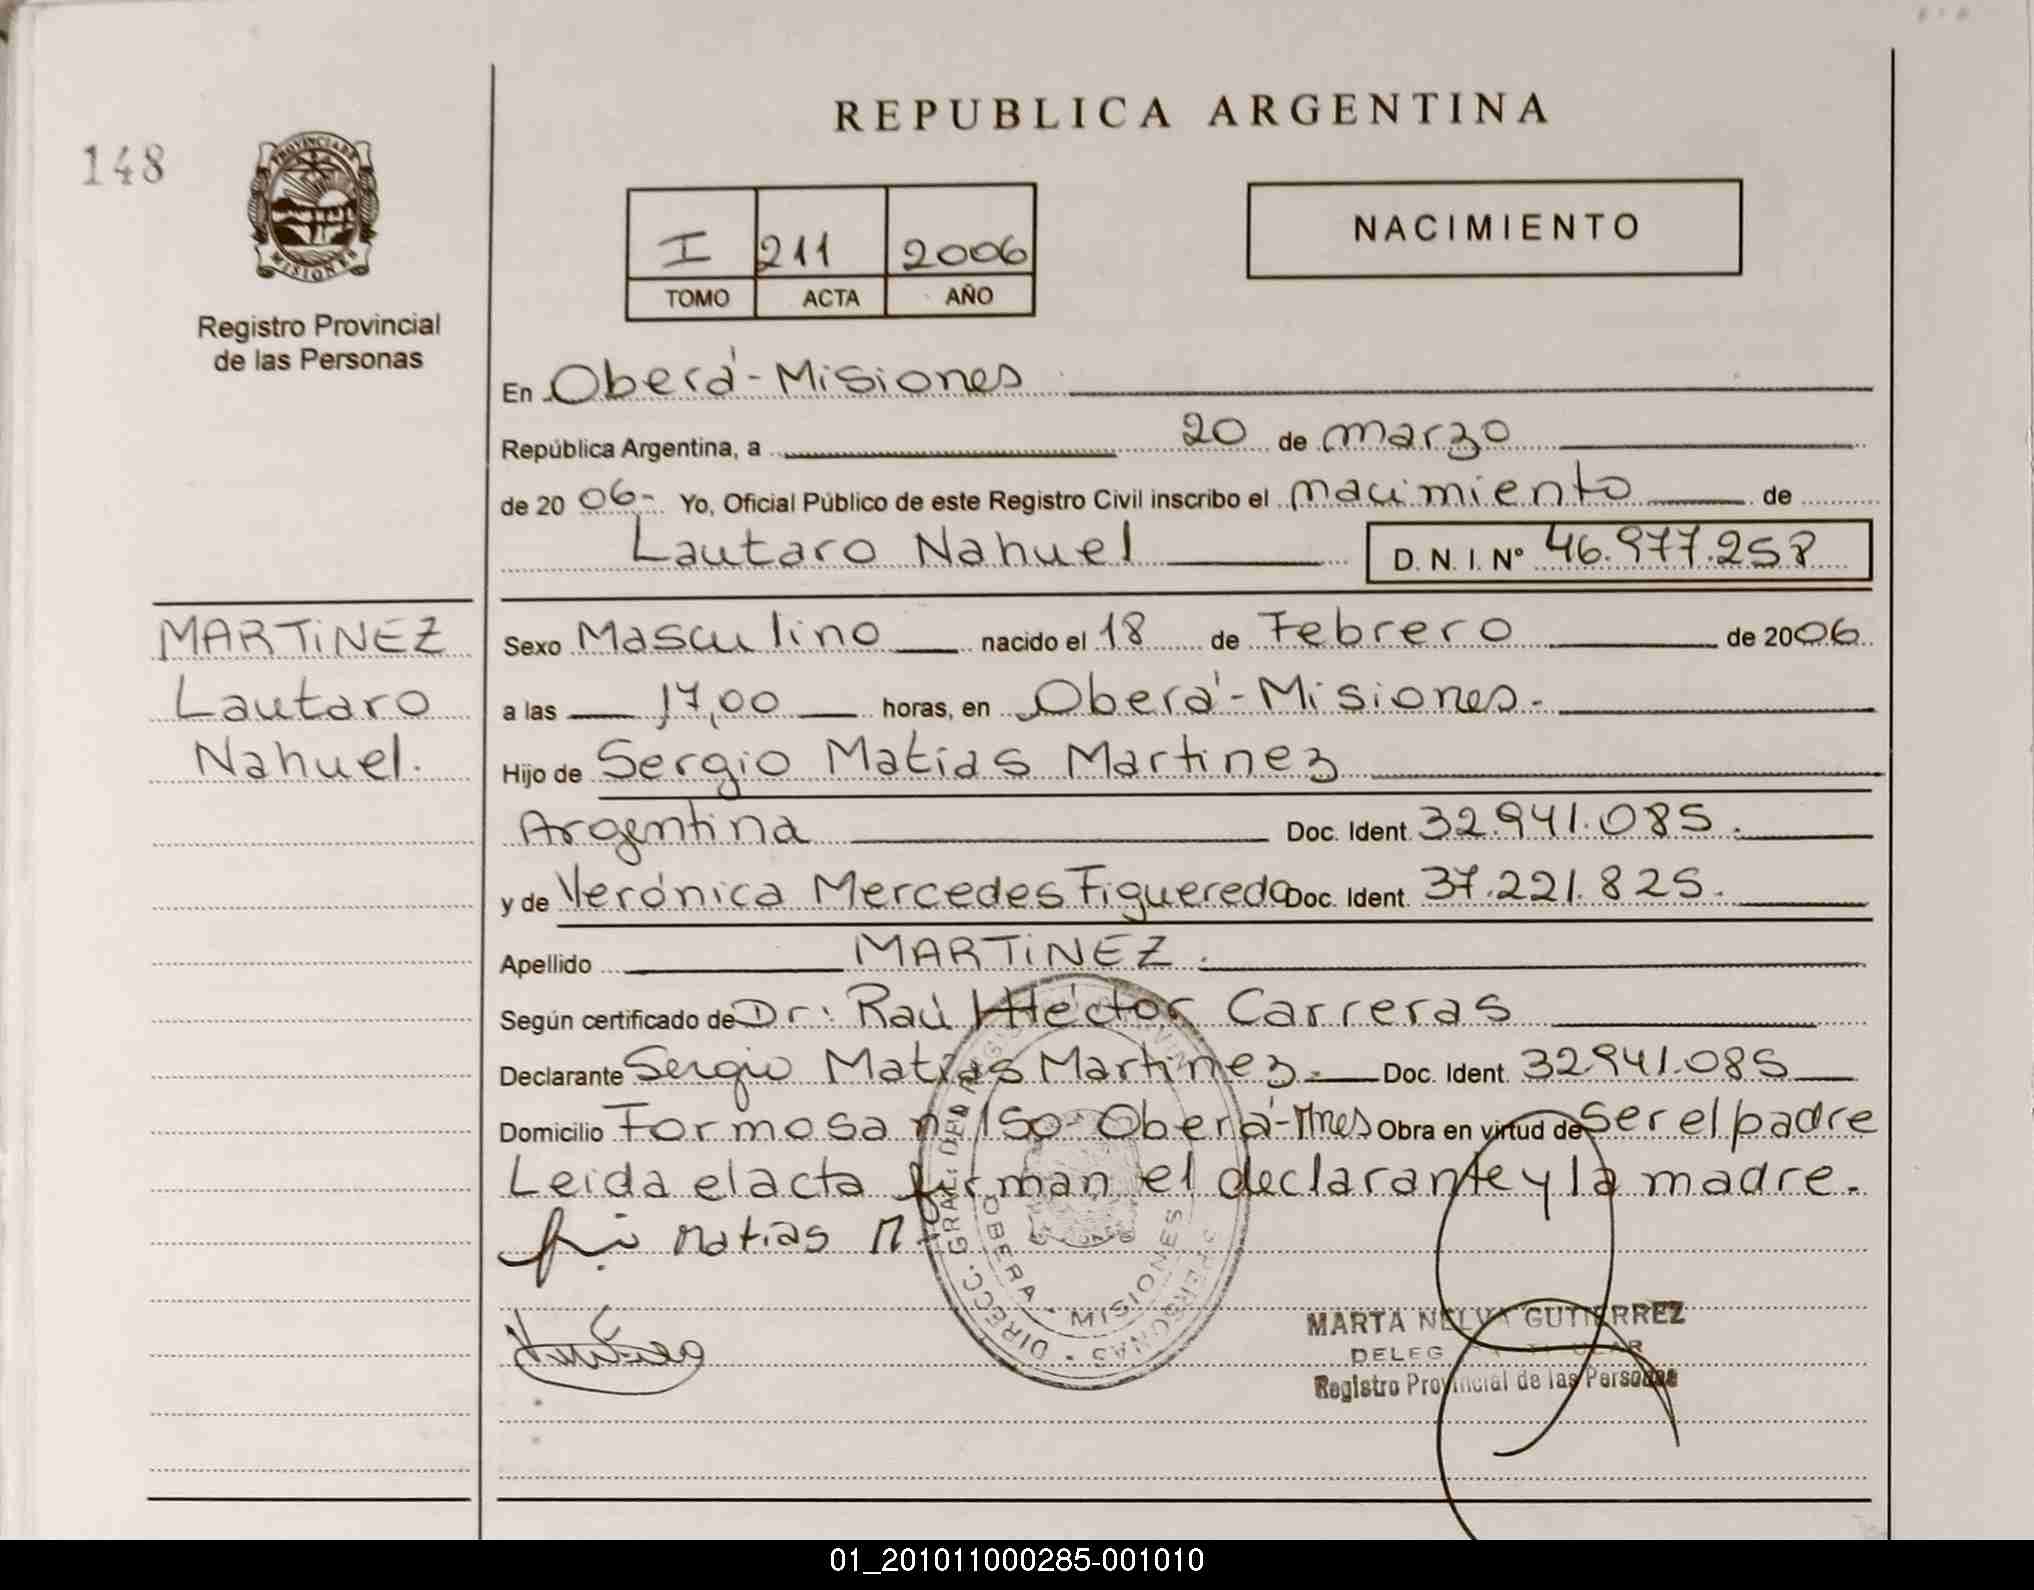 REPUBLICA ARGENTINA
148
PROVINCIA DE
MISIONES
Registro Provincial
de las Personas
I 211 2006
TOMO ACTA AÑO
NACIMIENTO
En Oberá - Misiones
República Argentina, a 20 de marzo
de 20 06- Yo, Oficial Público de este Registro Civil inscribo el nacimiento de
Lautaro Nahuel D. N. I. Nº 46.977.258
MARTiNEZ
Lautaro
Nahuel.
Sexo Masculino nacido el 18 de Febrero de 2006
a las 17,00 horas, en Oberá - Misiones.
Hijo de Sergio Matías Martinez
Argentina Doc. Ident. 32.941.085.
y de Verónica Mercedes Figueredo Doc. Ident. 37.221.825.
Apellido MARTiNEZ.
Según certificado de Dr: Raúl Héctor Carreras
Declarante Sergio Matías Martinez. Doc. Ident. 32.941.085
Domicilio Formosa n: 150- Oberá-Mnes Obra en virtud de Ser el padre
Leida el acta firman el declarante y la madre.
Matias M.
DIRECC. GRAL. DEL REGISTRO PROVINCIAL DE LAS PERSONAS
OBERA - MISIONES
MARTA NELVA GUTIERREZ
Registro Provincial de las Personas
01_201011000285-001010